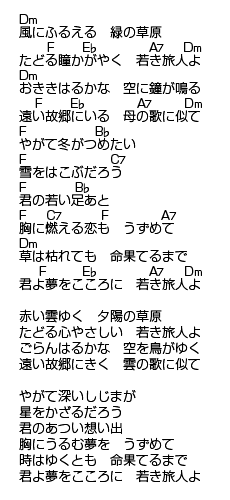 Dm
風にふるえる　緑の草原
F E♭ A7 Dm
たどる瞳かがやく　若き旅人よ
Dm
おききはるかな　空に鐘が鳴る
F E♭ A7 Dm
遠い故郷にいる　母の歌に似て
F B♭
やがて冬がつめたい
F C7
雪をはこぶだろう
F B♭
君の若い足あと
F C7 F A7
胸に燃える恋も　うずめて
Dm
草は枯れても　命果てるまで
F E♭ A7 Dm
君よ夢をこころに　若き旅人よ
赤い雲ゆく　夕陽の草原
たどる心やさしい　若き旅人よ
ごらんはるかな　空を鳥がゆく
遠い故郷にきく　雲の歌に似て
やがて深いしじまが
星をかざるだろう
君のあつい想い出
胸にうるむ夢を　うずめて
時はゆくとも　命果てるまで
君よ夢をこころに　若き旅人よ